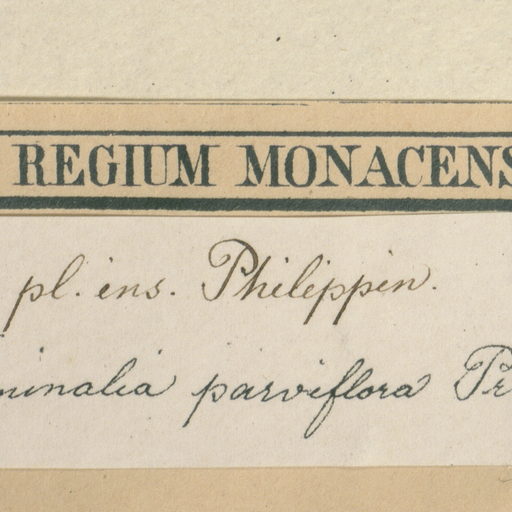 REGIUM MONACENS
pl. ins. Philippin.
minalia parviflora Pr